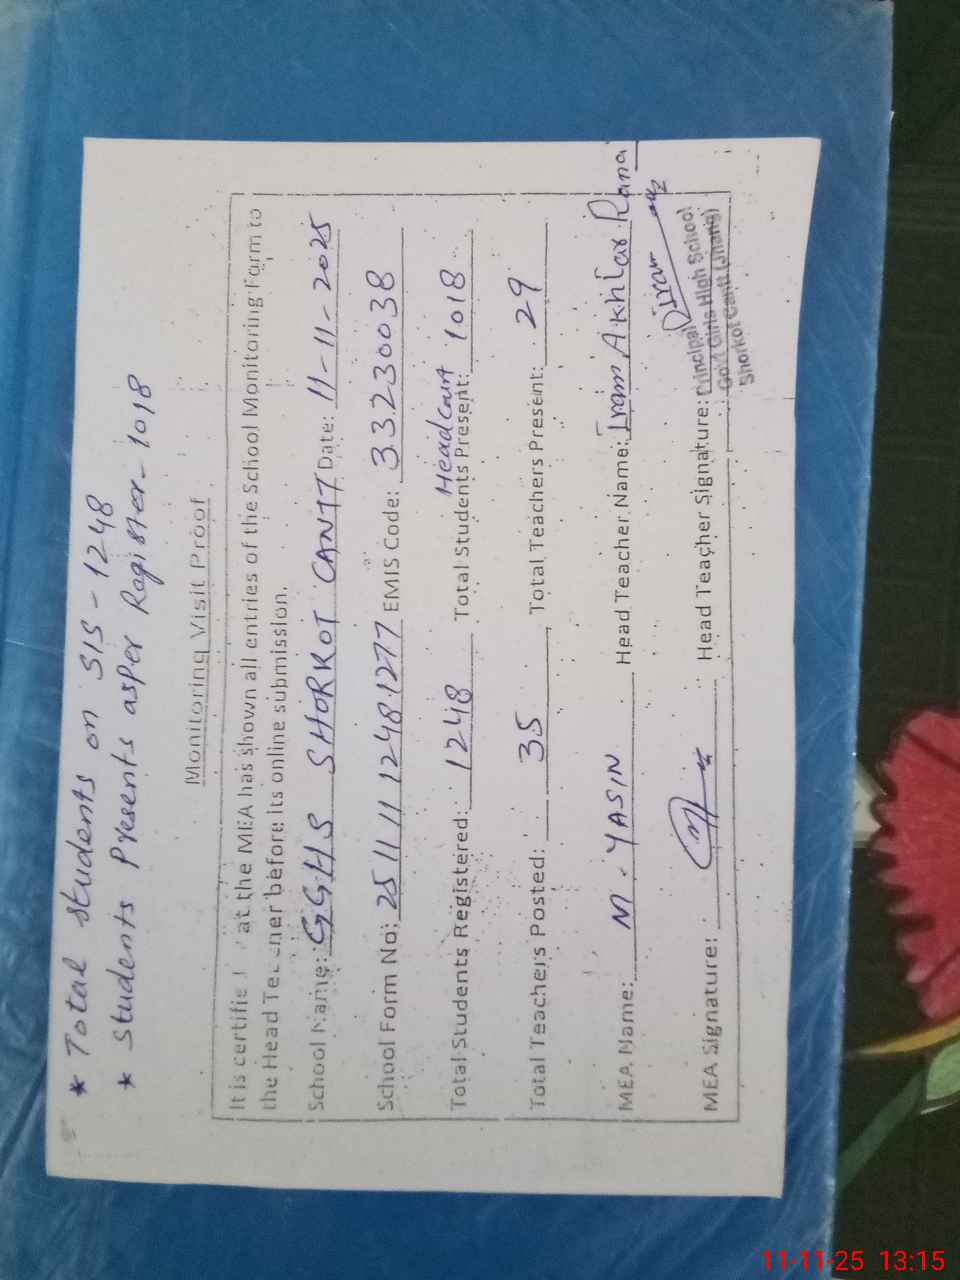 * Total Students on SIS - 1248
* Students Presents asper Register - 1018
Monitoring Visit Proof
It is certifie at the MEA has shown all entries of the School Monitoring Form to
the Head Teacher before its online submission.
School Name: GGHS SHORKOT CANTT Date: 11-11-2025
School Form No: 25111112481277 EMIS Code: 33230038
Headcount
Total Students Registered: 1248 Total Students Present: 1018
Total Teachers Posted: 35 Total Teachers Present: 29
MEA Name: M. YASIN Head Teacher Name: Iram Akhtar Rana
MEA Signature: Head Teacher Signature:
Principal
Govt Girls High School
Shorkot Cantt (Jhang)
11-11-25 13:15